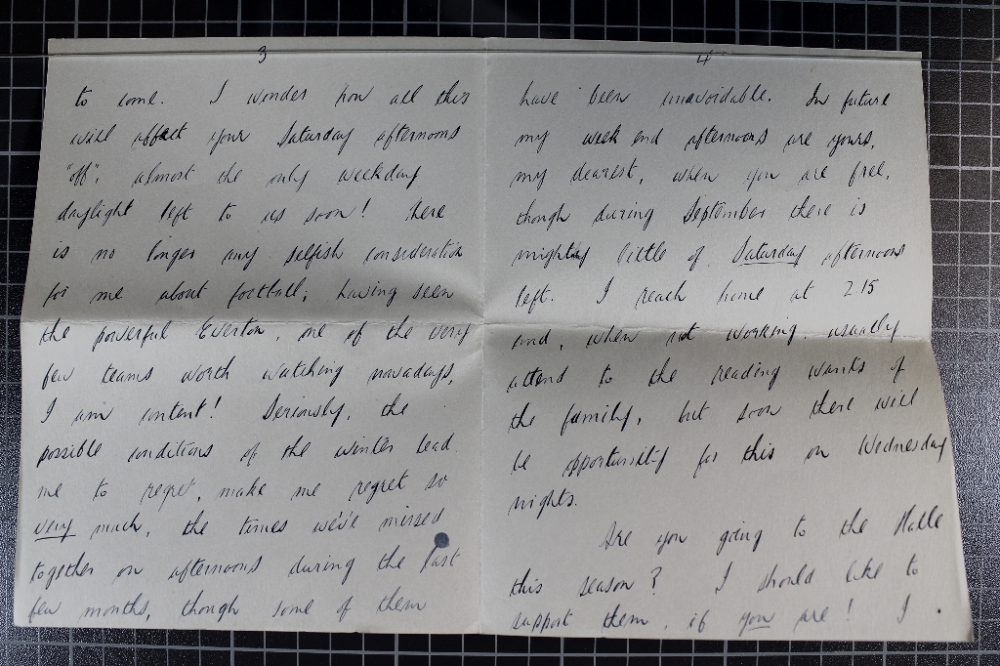 3
to come. I wonder how all this
will affect your Saturday afternoons
"off", almost the only weekday
daylight left to us soon! There
is no longer any selfish consideration
for me about football; having seen
the powerful Everton, one of the very
few teams worth watching nowadays,
I am content! Seriously, the
possible conditions of the winter lead
me to regret, make me regret so
very much, the times we've missed
together on afternoons during the last
few months, though some of them
4
have been unavoidable. In future
my week end afternoons are yours,
my dearest, when you are free,
though during September there is
mighty little of Saturday afternoons
left. I reach home at 2.15
and, when not working, usually
attend to the reading wants of
the family, but soon there will
be opportunity for this on Wednesday
nights.
Are you going to the Halle
this season? I should like to
support them, if you are! I